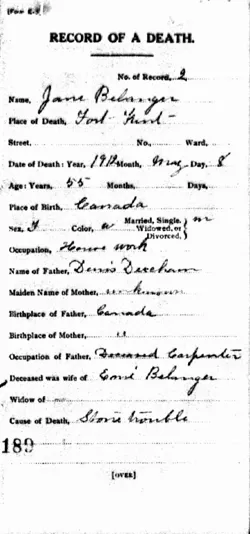 [For E.
RECORD OF A DEATH.
No. of Record, 2
Name, Jane Belanger
Place of Death, Fort Kent
Street. No., Ward,
Date of Death: Year, 191 Month, May Day, 8
Age: Years, 55 Months, Days,
Place of Birth, Canada
Sex, F Color, w Married, Single, Widowed, or Divorced, } m
Occupation, House work
Name of Father, Denis
Maiden Name of Mother, unknown
Birthplace of Father, Canada
Birthplace of Mother, "
Occupation of Father, Deceased Carpenter
Deceased was wife of Belanger
Widow of
Cause of Death, Stone trouble
189
[OVER]